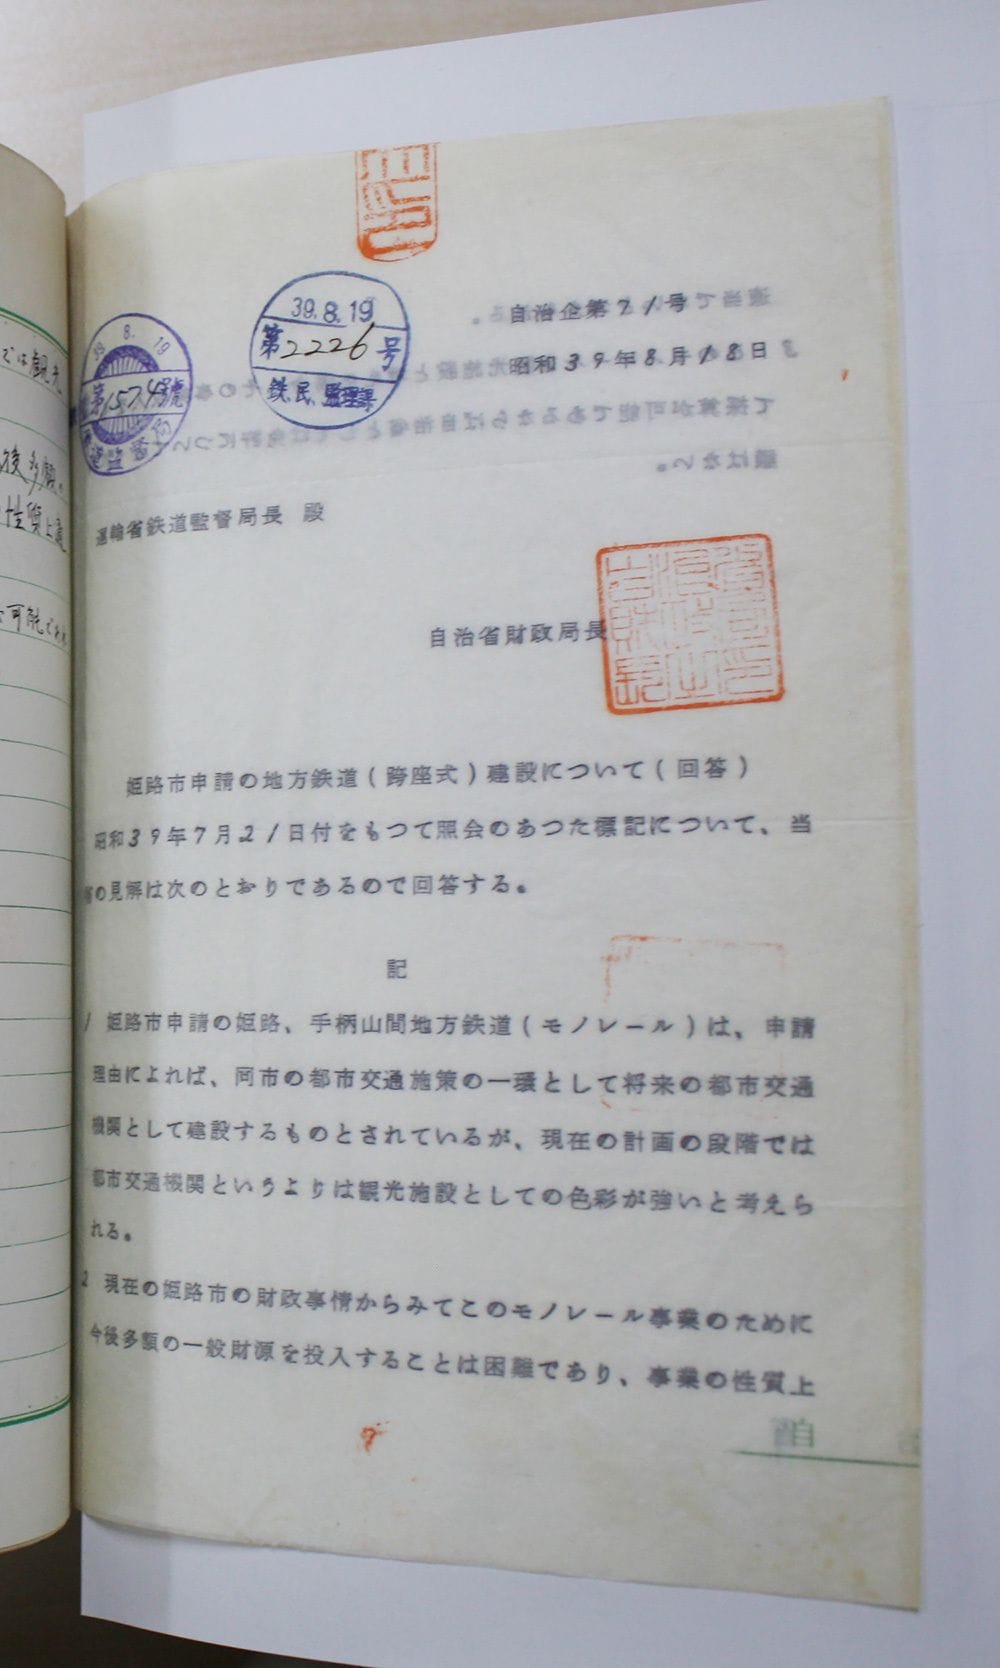 39.8.19
第2226号
鉄.民.監理課
39 8. 19
第1574号
道監督局
自治企第71号
昭和39年8月18日
運輸省鉄道監督局長 殿
自治省財政局長
姫路市申請の地方鉄道(跨座式)建設について(回答)
昭和39年7月21日付をもつて照会のあつた標記について、当
省の見解は次のとおりであるので回答する。
記
1 姫路市申請の姫路、手柄山間地方鉄道(モノレール)は、申請
理由によれば、同市の都市交通施策の一環として将来の都市交通
機関として建設するものとされているが、現在の計画の段階では
都市交通機関というよりは観光施設としての色彩が強いと考えら
れる。
2 現在の姫路市の財政事情からみてこのモノレール事業のために
今後多額の一般財源を投入することは困難であり、事業の性質上
では観光
後多額の
性質上
可能